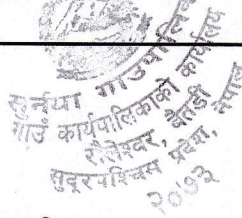 सुर्नया गाउँपालिका
गाउँ कार्यपालिकाको कार्यालय
शैलेश्वर, बैतडी
सुदूरपश्चिम प्रदेश, नेपाल
२०७३